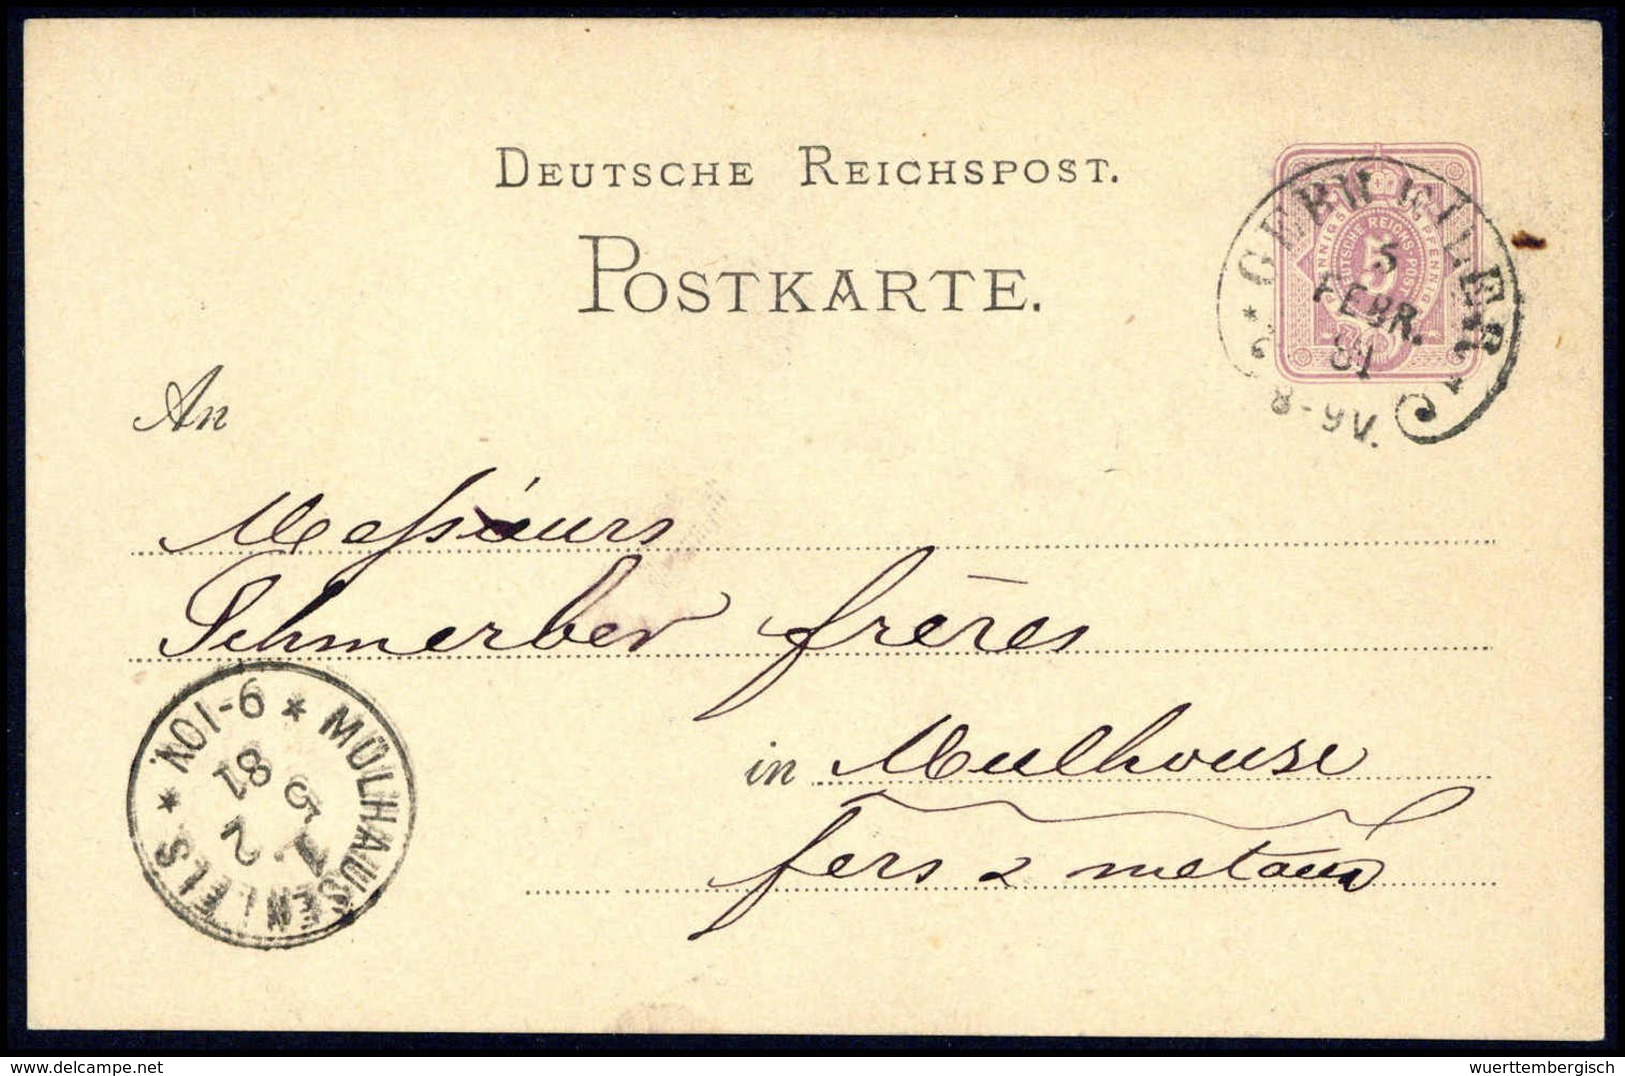 DEUTSCHE REICHSPOST.
POSTKARTE.
PFENNIG
DEUTSCHE REICHS-POST
5
GEBWEILER
5
FEBR.
81
8-9V.
An
Messieurs
Schmerber frères
in Mulhouse
fers & métaux
MÜLHAUSEN I. ELS * 9-10V *
5 2
81
delcampe.net
wuerttembergisch